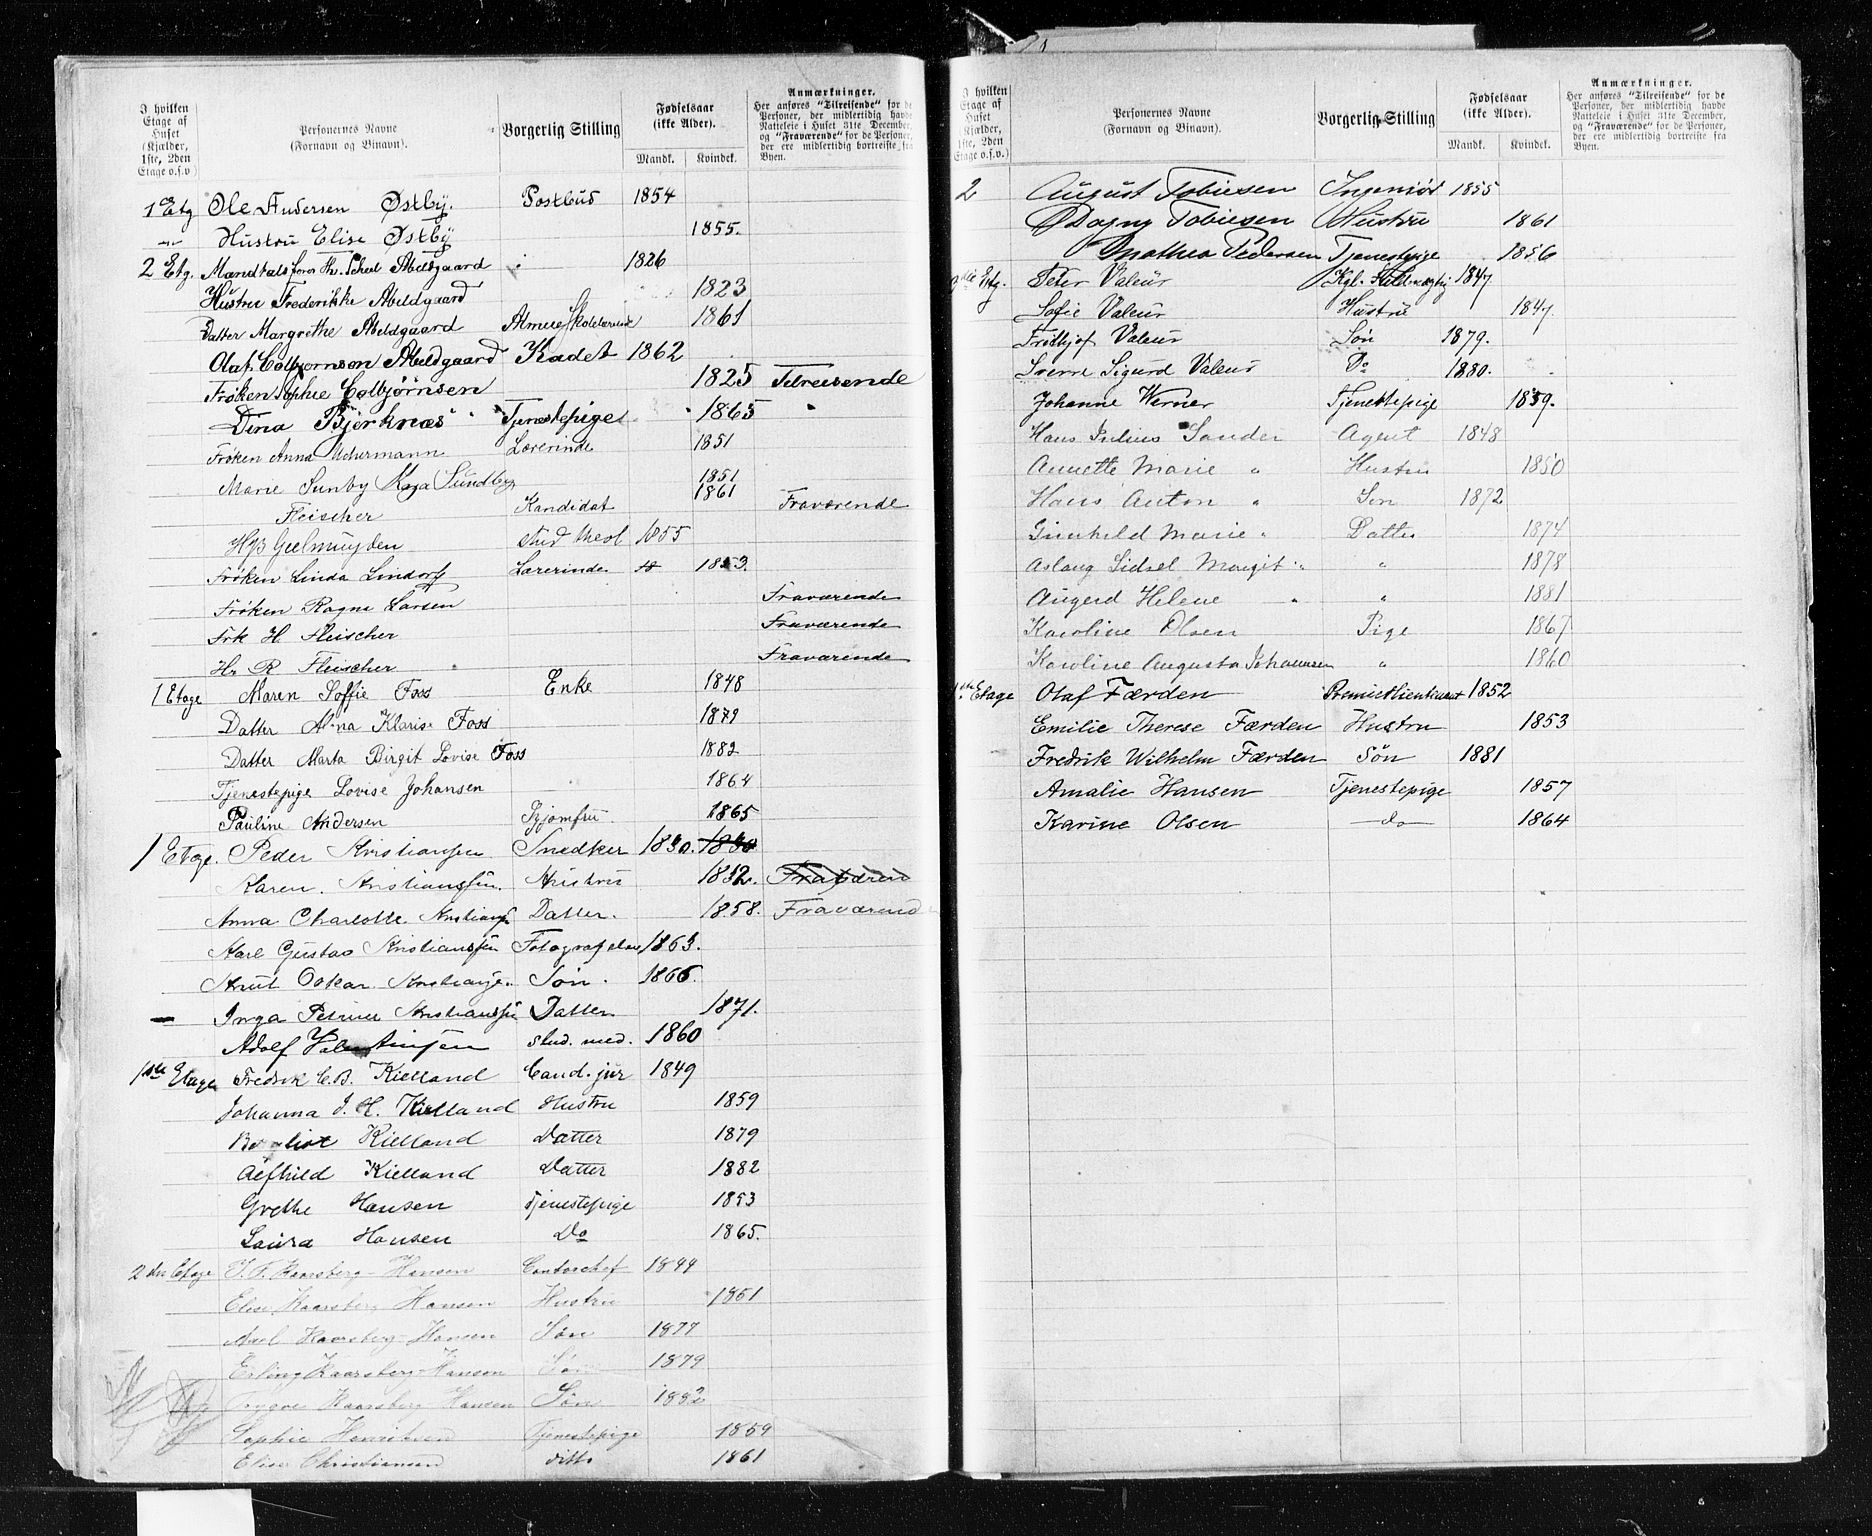 I hvilken Etage af Huset (Kjælder, 1ste, 2den Etage o.s.v)
Personernes Navne (Fornavn og Binavn).
Borgerlig Stilling
Fødselsaar (ikke Alder).
Mandk. Kvindek.
Anmærkninger.
Her anføres "Tilreisende" for de Personer, der midlertidig havde Natteleie i Huset 31te December, og "Fraværende" for de Personer, der ere midlertidig bortreiste fra Byen.
1 Etg Ole Andersen Østby. Postbud 1854
" Hustru Elise Østby 1855.
2 Etg. Abildgaard 1826
Hustru Frederikke Abildgaard 1823
Datter Margrethe Abildgaard Almueskolelærerinde 1861
Olaf Colbjørnson Abildgaard Kadet 1862
Frøken Sophie Colbjørnsen 1825 Tilreisende
Dina Bjerknæs Tjenestepige 1865
Frøken Anna Uchermann Lærerinde 1851
Marie Sunby Kaja Sundby 1851
Fleischer Kandidat 1861 Fraværende
Geelmuyden stud theol 1855
Frøken Linda Lindorff Lærerinde 1853.
Frøken Ragna Larsen Fraværende
Frk H Fleischer Fraværende
Hr. R Fleischer Fraværende
1 Etage Maren Soffie Foss Enke 1848
Datter Alna Klarise Foss 1879
Datter Marta Birgit Lovise Foss 1882
Tjenestepige Lovise Johansen 1864
Pauline Andersen 1865
1 Etage. Peder Kristianssen Snedker 1830. 1830
Karen. Kristianssen. Hustru 1832. Fraværend
Anna Charlotte Kristianss Datter. 1858. Fraværende
Karl Gustav Kristianssen Fotografelev 1863.
Knut Oskar Kristianse. Søn. 1866.
— Inga Petrine Kristianssen Datter 1871.
Adolf Valentinsen stud. med. 1860
1ste Etage Fredrik C.B. Kielland Cand. jur 1849
Johanna J. H. Kielland Hustru 1859
Kielland Datter 1879
Alfhild Kielland Datter 1882
Grethe Hansen Tjenestepige 1853
Laura Hansen Do 1865.
2den Etage J. F. Kaarsberg-Hansen Contorchef 1844
Elise Kaarsberg Hansen Hustru 1851
Axel Kaarsberg-Hansen Søn 1877
Erling Kaarsberg-Hansen Søn 1879
Trygve Kaarsberg Hansen Søn 1882
Sophie Henriksen Tjenestepige 1859
Elise Christiansen ditto 1861
I hvilken Etage af Huset (Kjælder, 1ste, 2den Etage o.s.v.)
Personernes Navne (Fornavn og Binavn).
Borgerlig Stilling
Fødselsaar (ikke Alder).
Mandk. Kvindek.
Anmærkninger.
Her anføres "Tilreisende" for de Personer, der midlertidig havde Natteleie i Huset 31te December, og "Fraværende" for de Personer, der ere midlertidig bortreiste fra Byen.
2 August Tobiesen Ingeniør 1855
Dagny Tobiesen Hustru 1861
Mathea Pedersen Tjenestepige 1856
Etg. Peter Valeur Kgl. Fuldmægtig 1847.
Sofie Valeur Hustru 1847.
Fridtjof Valeur Søn 1879.
Sverre Sigurd Valeur Do 1880.
Johanne Werner Tjenestepige 1859.
Hans Julius Sander Agent 1848
Annette Marie " Hustru 1850
Hans Anton " Søn 1872
Gunhild Marie " Datter 1874
Aslaug Sidsel Margit " " 1878
Augerd Helene " " 1881
Karoline Olsen Pige 1867
Karoline Augusta Johannsen " 1860
1ste Etage Olaf Færden Premierlieutenant 1852
Emilie Therese Færden Hustru 1853
Fredrik Wilhelm Færden Søn 1881
Amalie Hansen Tjenestepige 1857
Karine Olsen —do— 1864